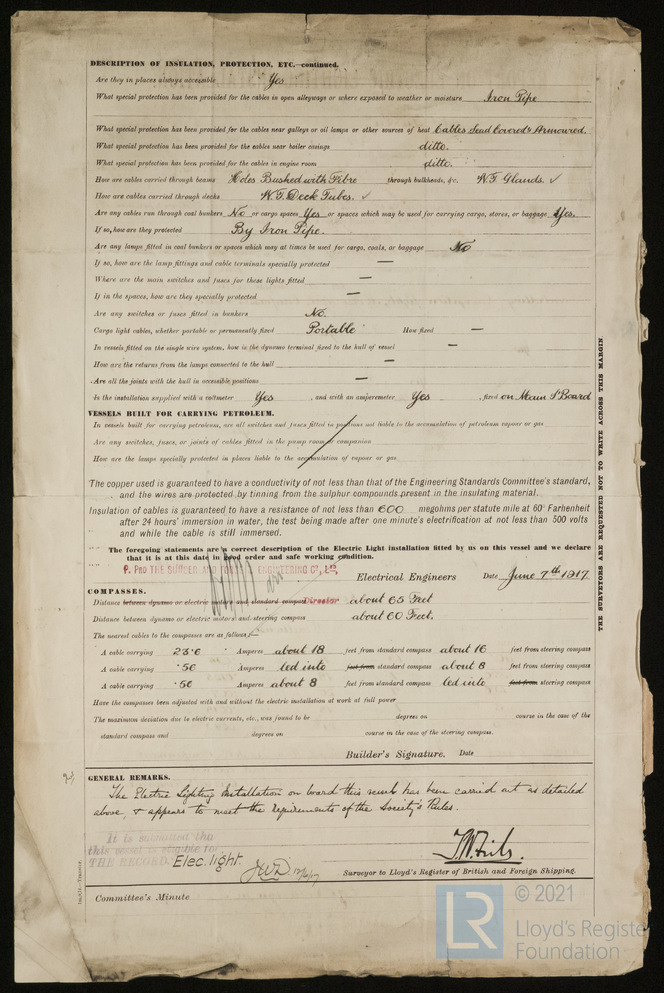 DESCRIPTION OF INSULATION, PROTECTION, ETC.—continued.
Are they in places always accessible Yes
What special protection has been provided for the cables in open alleyways or where exposed to weather or moisture Iron Pipe
What special protection has been provided for the cables near galleys or oil lamps or other sources of heat Cables Lead Covered & Armoured.
What special protection has been provided for the cables near boiler casings ditto.
What special protection has been provided for the cables in engine room ditto.
How are cables carried through beams Holes Bushed with Fibre through bulkheads, &c. W.T. Glands. ✓
How are cables carried through decks W.T. Deck Tubes. ✓
Are any cables run through coal bunkers No or cargo spaces Yes or spaces which may be used for carrying cargo, stores, or baggage Yes.
If so, how are they protected By Iron Pipe.
Are any lamps fitted in coal bunkers or spaces which may at times be used for cargo, coals, or baggage No
If so, how are the lamp fittings and cable terminals specially protected —
Where are the main switches and fuses for these lights fitted —
If in the spaces, how are they specially protected —
Are any switches or fuses fitted in bunkers No.
Cargo light cables, whether portable or permanently fixed Portable How fixed —
In vessels fitted on the single wire system, how is the dynamo terminal fixed to the hull of vessel —
How are the returns from the lamps connected to the hull —
Are all the joints with the hull in accessible positions —
Is the installation supplied with a voltmeter Yes , and with an amperemeter Yes , fixed on Main S' Board
VESSELS BUILT FOR CARRYING PETROLEUM.
In vessels built for carrying petroleum, are all switches and fuses fitted in positions not liable to the accumulation of petroleum vapour or gas
Are any switches, fuses, or joints of cables fitted in the pump room or companion
How are the lamps specially protected in places liable to the accumulation of vapour or gas
The copper used is guaranteed to have a conductivity of not less than that of the Engineering Standards Committee's standard,
and the wires are protected by tinning from the sulphur compounds present in the insulating material.
Insulation of cables is guaranteed to have a resistance of not less than 600 megohms per statute mile at 60° Farhenheit
after 24 hours' immersion in water, the test being made after one minute's electrification at not less than 500 volts
and while the cable is still immersed.
The foregoing statements are a correct description of the Electric Light installation fitted by us on this vessel and we declare
that it is at this date in good order and safe working condition.
P. PRO THE ENGINEERING Co., LD.
Electrical Engineers Date June 7th 1917.
COMPASSES.
Distance between dynamo or electric motors and standard compass Director about 65 Feet
Distance between dynamo or electric motors and steering compass about 60 Feet.
The nearest cables to the compasses are as follows:—
A cable carrying 23·6 Amperes about 18 feet from standard compass about 16 feet from steering compass
A cable carrying ·56 Amperes led into feet from standard compass about 8 feet from steering compass
A cable carrying ·56 Amperes about 8 feet from standard compass led into feet from steering compass
Have the compasses been adjusted with and without the electric installation at work at full power
The maximum deviation due to electric currents, etc., was found to be degrees on course in the case of the
standard compass and degrees on course in the case of the steering compass.
Builder's Signature. Date
GENERAL REMARKS.
The Electric Lighting Installation on board this vessel has been carried out as detailed
above, & appears to meet the requirements of the Society's Rules.
It is submitted that
this vessel is eligible for
THE RECORD. Elec. light.
Surveyor to Lloyd's Register of British and Foreign Shipping.
Committee's Minute
THE SURVEYORS ARE REQUESTED NOT TO WRITE ACROSS THIS MARGIN
© 2021
LR
Lloyd's Register
Foundation